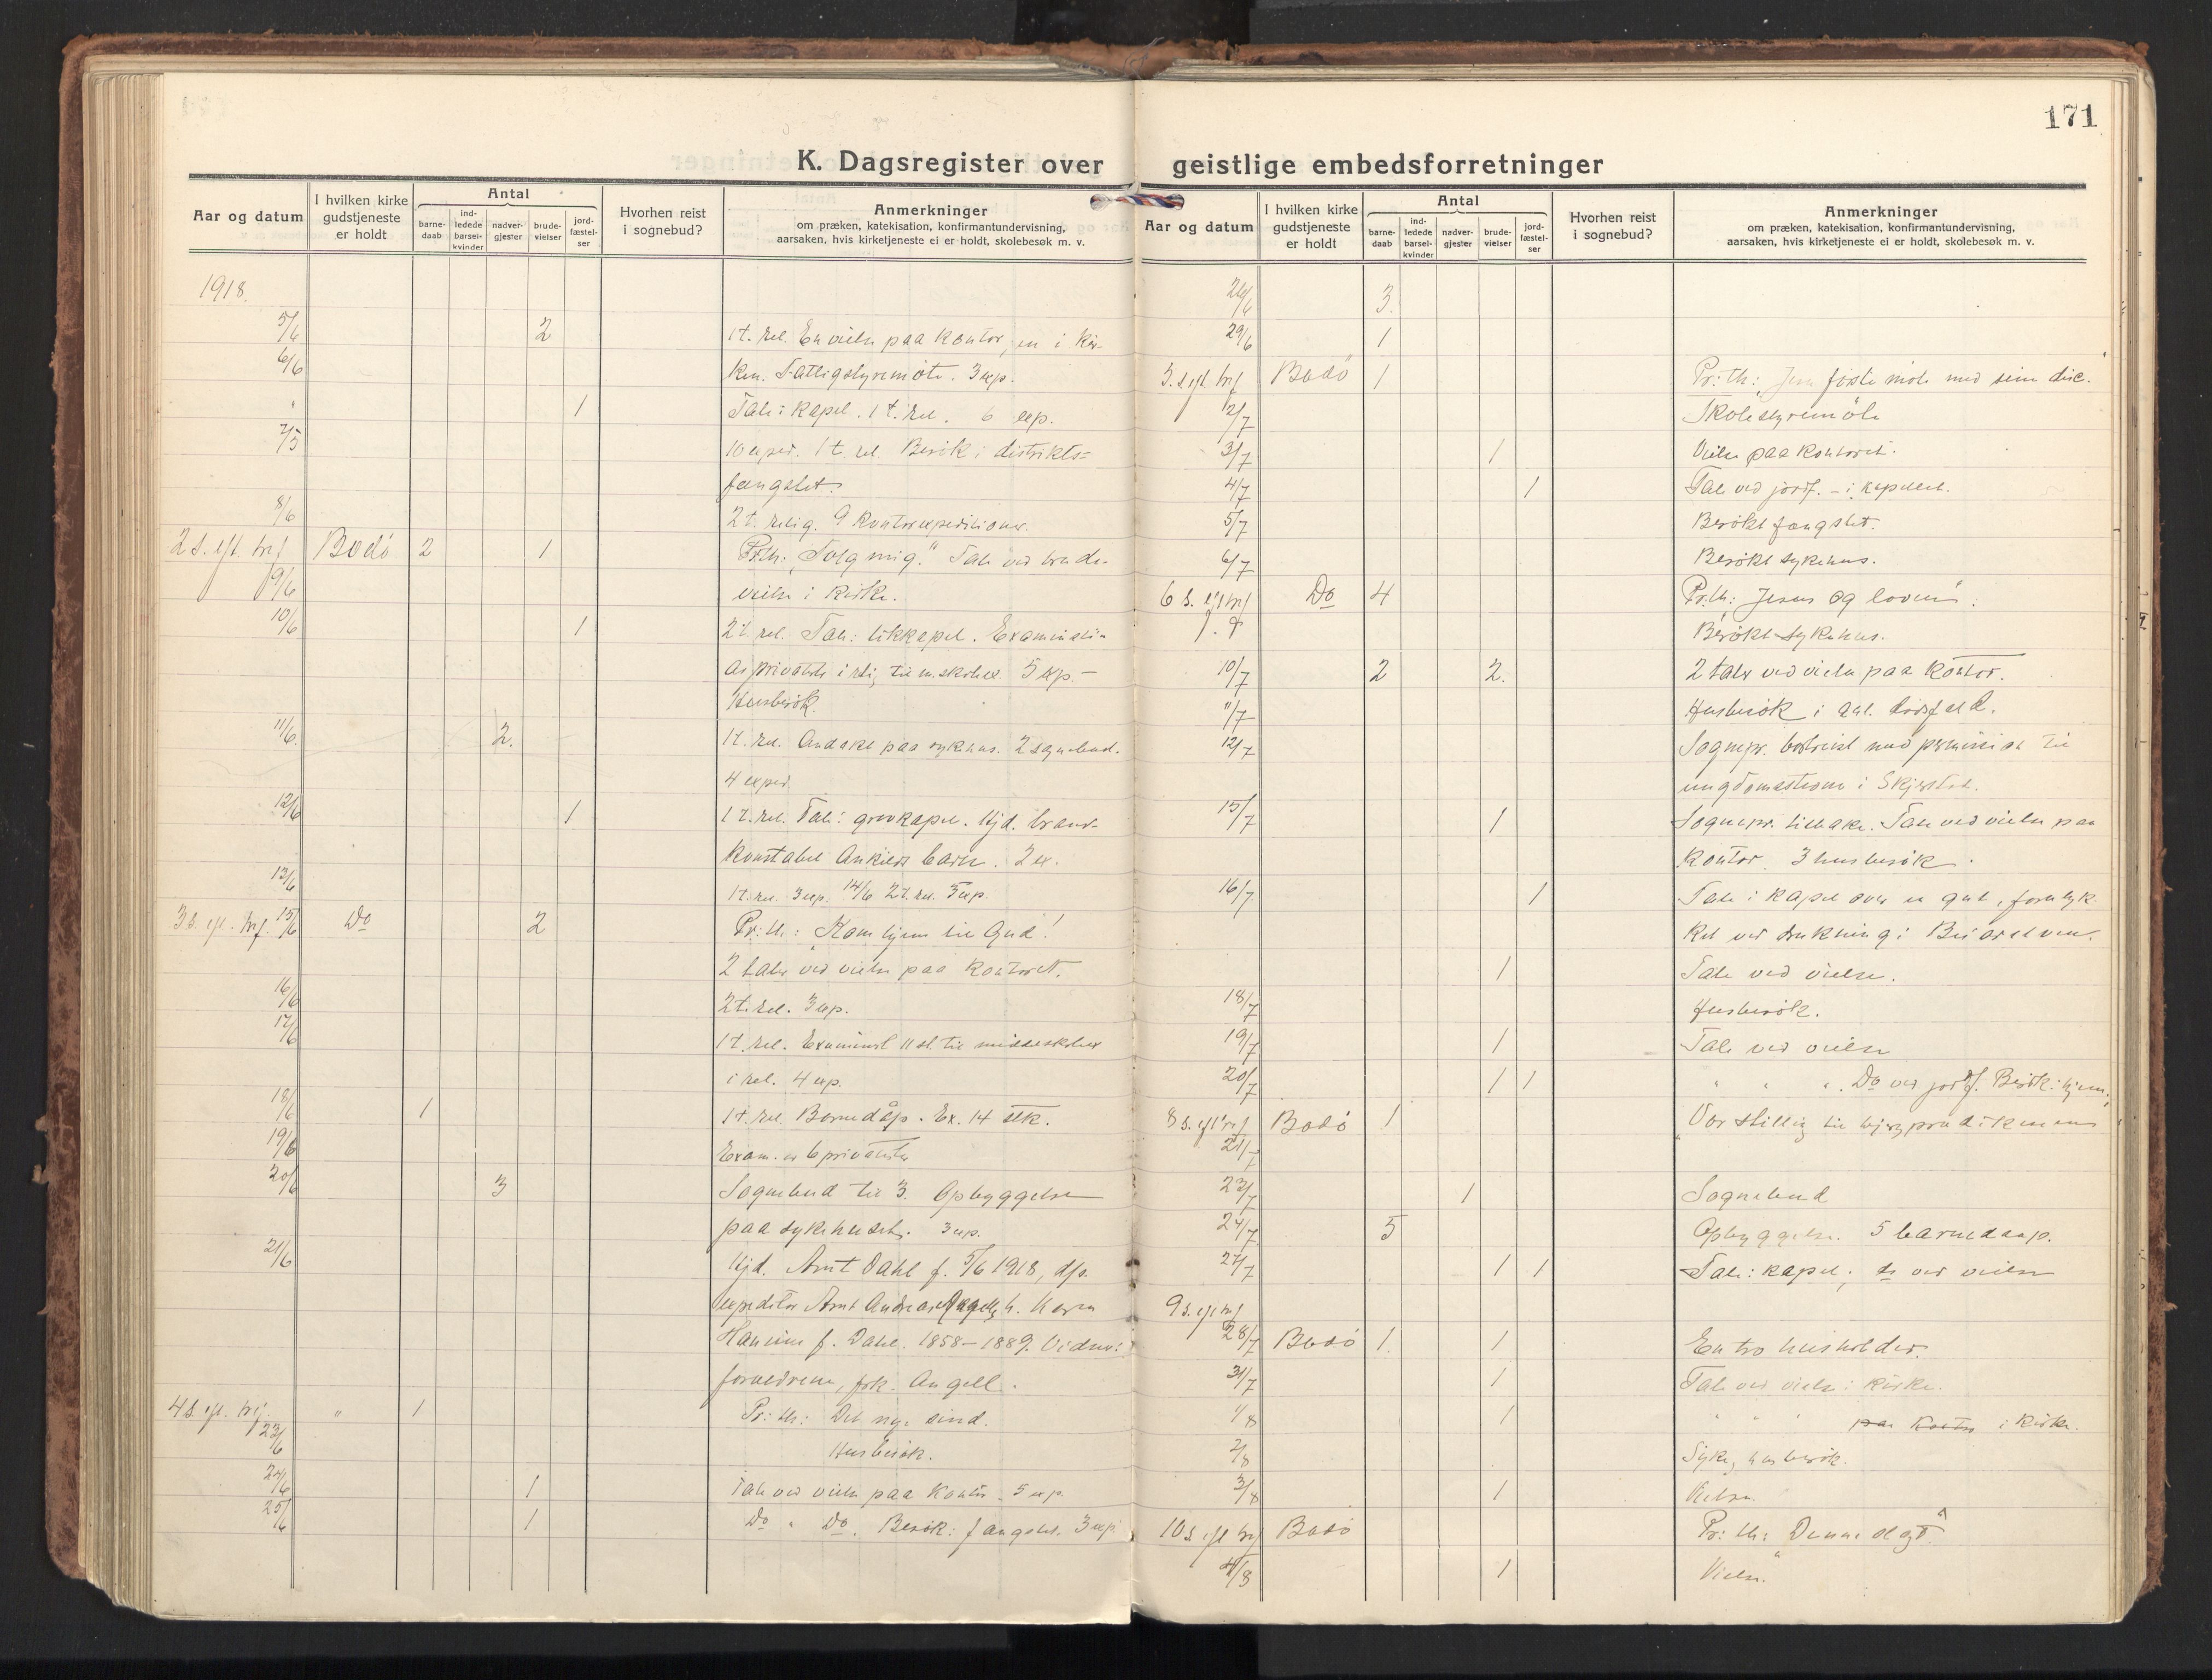 171
K. Dagsregister over geistlige embedsforretninger
Aar og datum
I hvilken kirke gudstjeneste er holdt
Antal
barne-daab
ind-ledede barsel-kvinder
nadver-gjester
brude-vielser
jord-fæstel-ser
Hvorhen reist i sognebud?
Anmerkninger
om præken, katekisation, konfirmantundervisning,
aarsaken, hvis kirketjeneste ei er holdt, skolebesøk m. v.
1918.
5/6 2 1 t. rel. En vielse paa kontor, en i kir-
6/6 ken. Fattigstyremøte. 3 exp.
" 1 Tale i kapel. 1 t. rel. 6 exp.
7/5 10 exped. 1 t. rel. Besøk i distrikts-
fængslet.
8/6 2 t. relig. 9 kontorexpeditioner.
2 s. eft. tref Bodö 2 1 Pr.th: "Følg mig." Tale ved brude-
9/6 vielse i kirke.
10/6 1 2 t. rel. Tale i likkapel.
5 exp. -
Husbesøk.
11/6. 2. 1 t. rel. Andakt paa sykehus. 2 sognebud.
4 exped.
12/6 1 1 t. rel. Tale i gravkapel. Hjd.
konstabel barn. 2 ex.
13/6 1 t. rel. 3 exp. 14/6 2 t. rel. 3 exp.
3 s. eft. tref. 15/6 Do 2 Pr: th.: "Kom hjem til Gud!
2 taler ved vielse paa kontoret.
16/6 2 t. rel. 3 exp.
17/6 1 t. rel. Examinert 11 st. til middelskolen
i rel. 4 exp.
18/6 1 1 t. rel. Barnedåp. Ex. 14 stk.
19/6 Exam. av 6 privatister
20/6 3 Sognebud til 3. Opbyggelse
paa sykehuset. 3 exp.
21/6 Hjd. Arnt Dahl f. 5/6 1918, af
expeditör Arnt Andreas h. Karen
Hansine f. Dahl. 1858-1889. Vidner:
forældrene, frk. Angell.
4 s. eft. tref. " 1 Pr: th: Det nye sind.
23/6 Husbesøk.
24/6 1 Tale ved vielse paa kontor. 5 exp.
25/6 1 Do " Do. Besøk i fængslet. 3 exp.
Aar og datum
I hvilken kirke gudstjeneste er holdt
Antal
barne-daab
ind-ledede barsel-kvinder
nadver-gjester
brude-vielser
jord-fæstel-ser
Hvorhen reist i sognebud?
Anmerkninger
om præken, katekisation, konfirmantundervisning,
aarsaken, hvis kirketjeneste ei er holdt, skolebesøk m. v.
26/6 3.
29/6 1
3. s eft. tref Bodö 1 Pr: th: "Jesu første møte med sine disc."
2/7 Skolestyremöte
3/7 1 Vielse paa kontoret.
4/7 1 Tale ved jordf. - i kapellet.
5/7 Besøkt fængslet.
6/7 Besøkt sykehus.
6 s. eft tref Do 4 Pr.th: "Jesus og loven".
Besøkt sykehus.
10/7 2 2. 2 taler ved vielse paa kontor.
11/7 Husbesøk i anl. dødsfald.
12/7 Sognepr. bortreist med permission til
ungdomsstevne i Skjerstad.
15/7 1 Sognepr. tilbake. Tale ved vielse paa
kontor. 3 husbesøk.
16/7 1 Tale i kapel over en gut, forulyk-
ket ved drukning i Beiarelven.
1 Tale ved vielse.
18/7 Husbesøk.
19/7 1 Tale ved vielse
20/7 1 1 " " ". Do ved jordf. Besøk i hjem.
8 s. eft tref Bodö 1 "Vor stilling til bjergprædikenen"
21/7
23/7 1 Sognebud
24/7 5 Opbyggelse. 5 barnedaap.
27/7 1 1 Tale i kapel; do ved vielse
9 s. eft tref
28/7 Bodö 1. 1 En tro husholder.
31/7 1 Tale ved vielse i kirke.
1/8 1 " " " paa kontor i kirke.
2/8 Syke, husbesøk.
3/8 1 Vielse.
10 s. eft tref Bodö Pr: th:
4/8 1 Vielse.